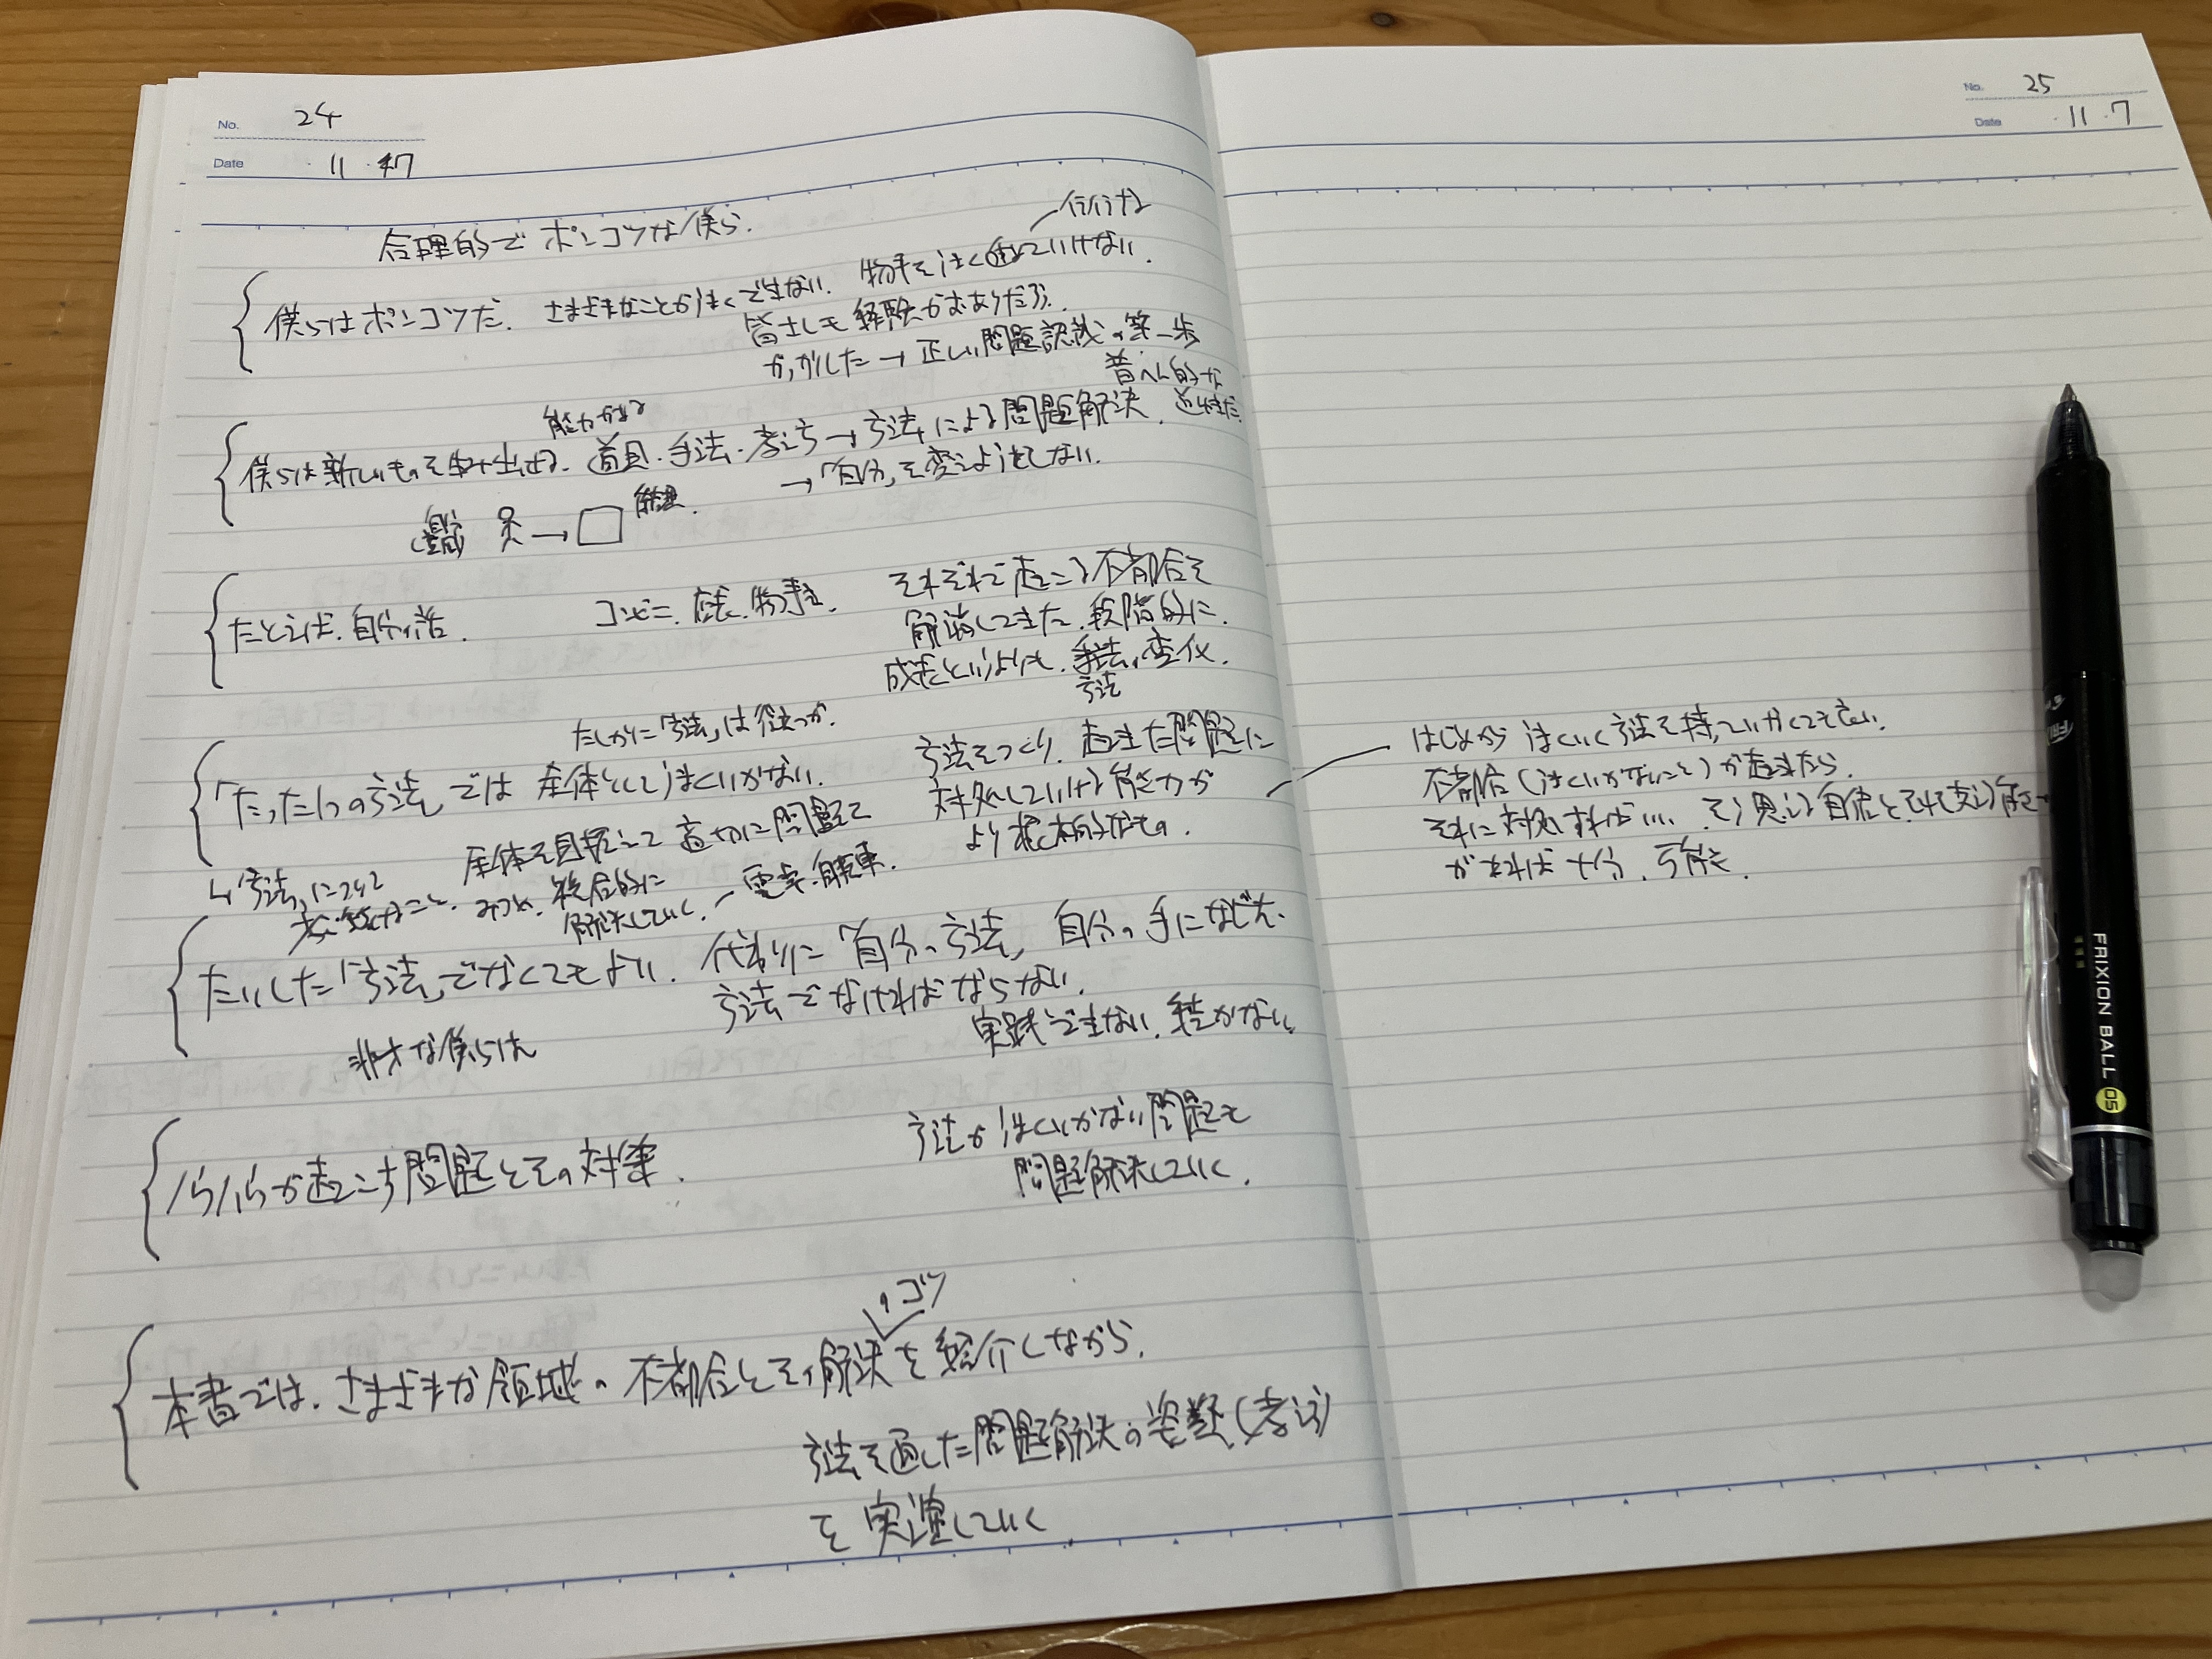 No. 24
Date ・11・7
合理的でポンコツな僕ら.
行けな
僕らはポンコツだ. さまざまなことがうまくできない. 物事をうまく進めていけない.
皆さんも経験がおありだろう.
がっかりした → 正しい問題認識の第一歩
普へん的な
能力がある
僕らは新しいものを生み出せる. 道具・手法・考え方 → 方法による問題解決.
→「自分」を変えようとしない.
たとえば、自分の話.
コンビニ、店長、物書き.
それぞれで起こる不都合を
解消してきた. 段階的に.
成長というよりも、手法の変化.
方法
たしかに「方法」は役立つが.
「たった1つの方法」では 全体としてうまくいかない.
方法をつくり、起きた問題に
対処していける能力が
より根本的なもの.
全体を目指して 適切に問題を
みつめ、複合的に
解決していく.
電卓・自転車.
↳「方法」について
たいした「方法」でなくてもよい. 代わりに「自分の方法」 自分の手になじんだ
方法でなければならない.
実践できない、続かない.
非才な僕らは
1つ1つが起こす問題とその対策.
方法がうまくいかない問題も
問題解決していく.
のコツ
本書では、さまざまな領域の不都合とその解決を紹介しながら、
方法を通した問題解決の姿勢(考え方)
を実演していく
No. 25
Date ・11・7
はじめから うまくいく方法を持っていなくてもいい.
不都合(うまくいかないこと)が起きたら、
それに対処すればいい. そう思える自信とそれを支える
があれば十分、可能.
FRIXION BALL 05